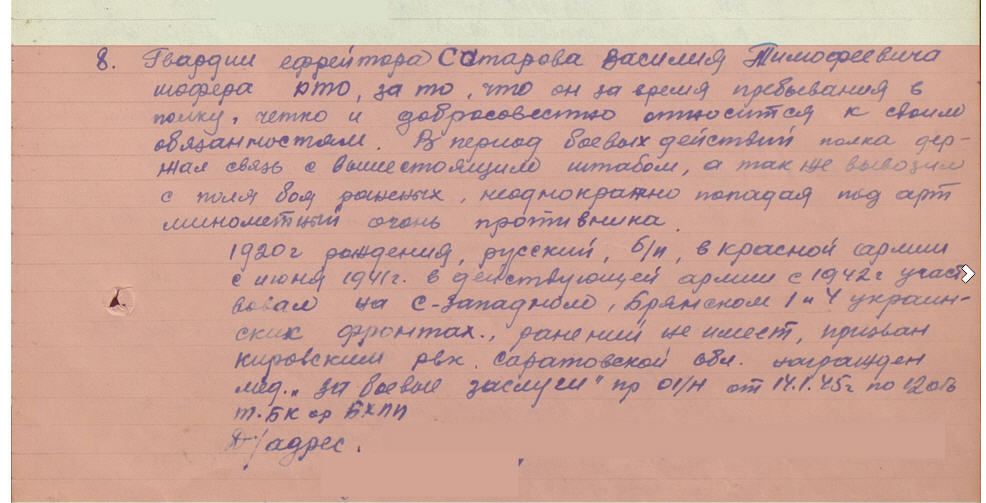 8. Гвардии ефрейтора Сатарова Василия Тимофеевича
шофера РТО, за то, что он за время пребывания в
полку, четко и добросовестно относится к своим
обязанностям. В период боевых действий полка дер-
жал связь с вышестоящим штабом, а так же вывозил
с поля боя раненых, неоднократно попадая под арт
минометный огонь противника.
1920г рождения, русский, б/п, в красной армии
с июня 1941г. в действующей армии с 1942г участ
вовал на С-западном, Брянском 1 и 4 украин-
ских фронтах., ранений не имеет, призван
Кировским рвк. Саратовской обл. награжден
мед. „за боевые заслуги" пр 01/н от 14.1.45г по 12 отб
т.БК ор БХПП
Д/адрес.